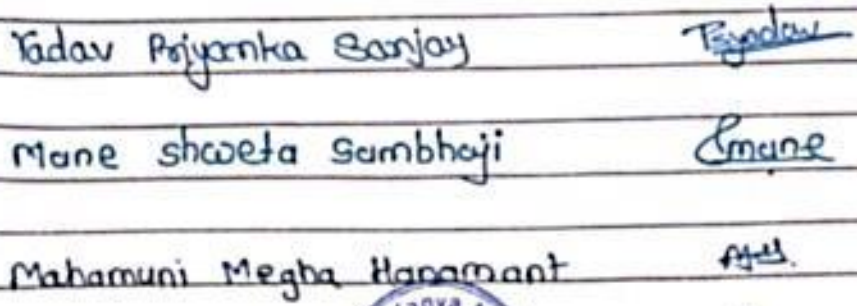 Yadav Priyanka Sanjay Psyadav
Mane shweta Sambhaji Smane
Mahamuni Megha Hanamant